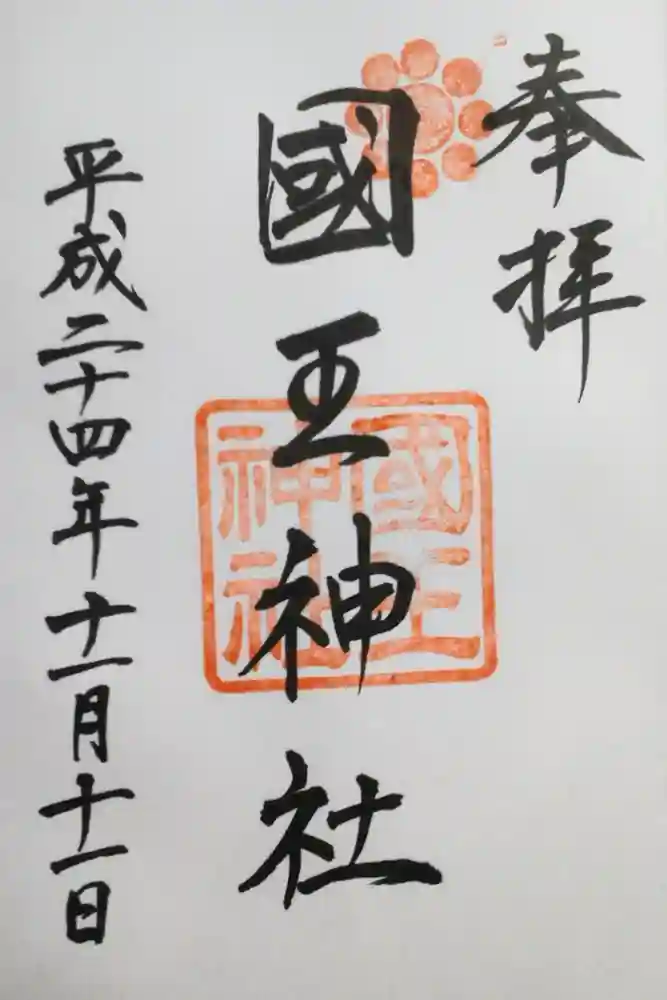 奉拝
國王神社
國王神社
平成二十四年十一月十一日